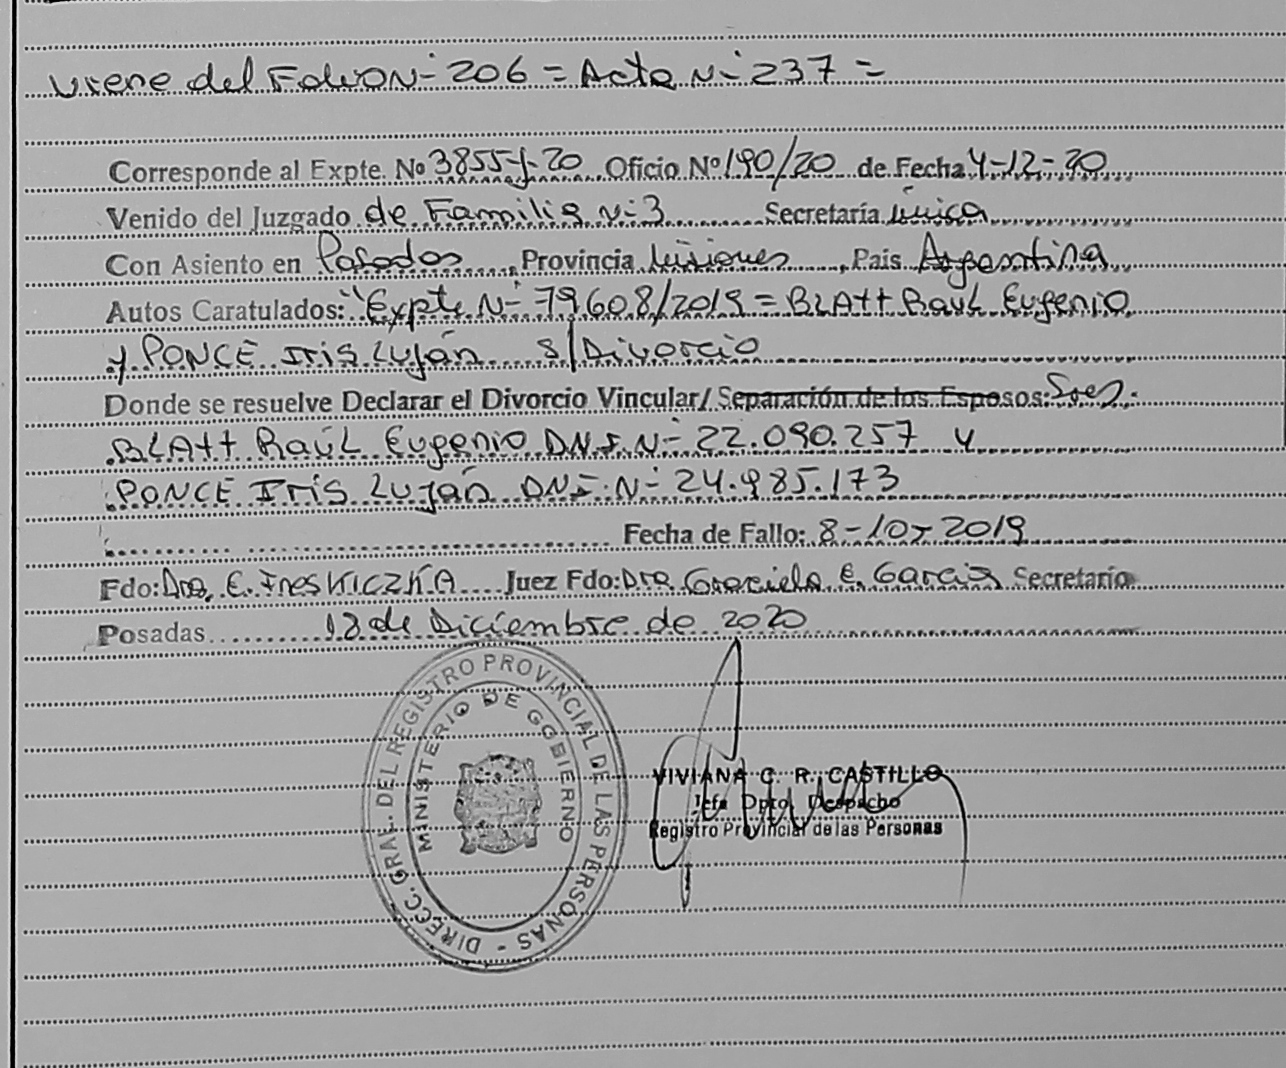 Viene del Folio Nº 206 = Acta Nº 237 =
Corresponde al Expte. Nº 3855-J-20 Oficio Nº 190/20 de Fecha 4-12-20
Venido del Juzgado de Familia Nº 3 Secretaría única
Con Asiento en Posadas, Provincia Misiones, Pais Argentina
Autos Caratulados: "Expte Nº 79608/2019 = BLAtt Raul Eugenio
y PONCE Iris Luján s/Divorcio
Donde se resuelve Declarar el Divorcio Vincular/ Separación de los Esposos: Sres.
BLAtt Raúl Eugenio DNI Nº 22.090.257 y
PONCE Iris Luján DNI Nº 24.985.173
Fecha de Fallo: 8-10-2019
Fdo: Dra. E. Juez Fdo: Dra Graciela E. Garcia Secretario
Posadas 18 de Diciembre de 2020
DIRECC. GRAL. DEL REGISTRO PROVINCIAL DE LAS PERSONAS -
MINISTERIO DE GOBIERNO
VIVIANA C. R. CASTILLO
Jefa Dpto. Despacho
Registro Provincial de las Personas